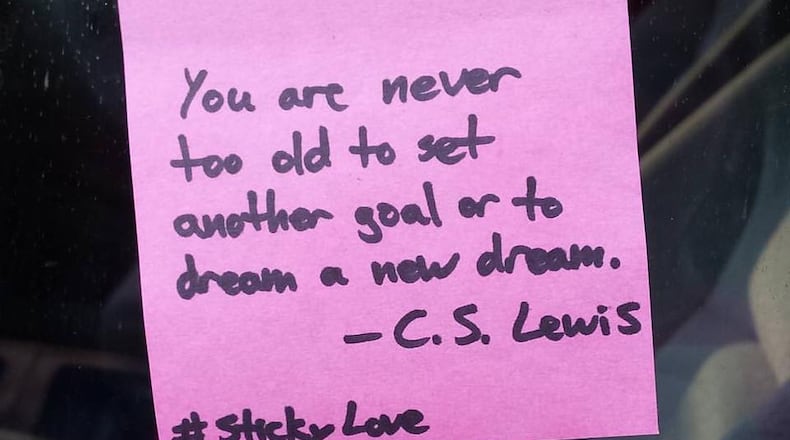 You are never
too old to set
another goal or to
dream a new dream.
- C.S. Lewis
#Sticky Love